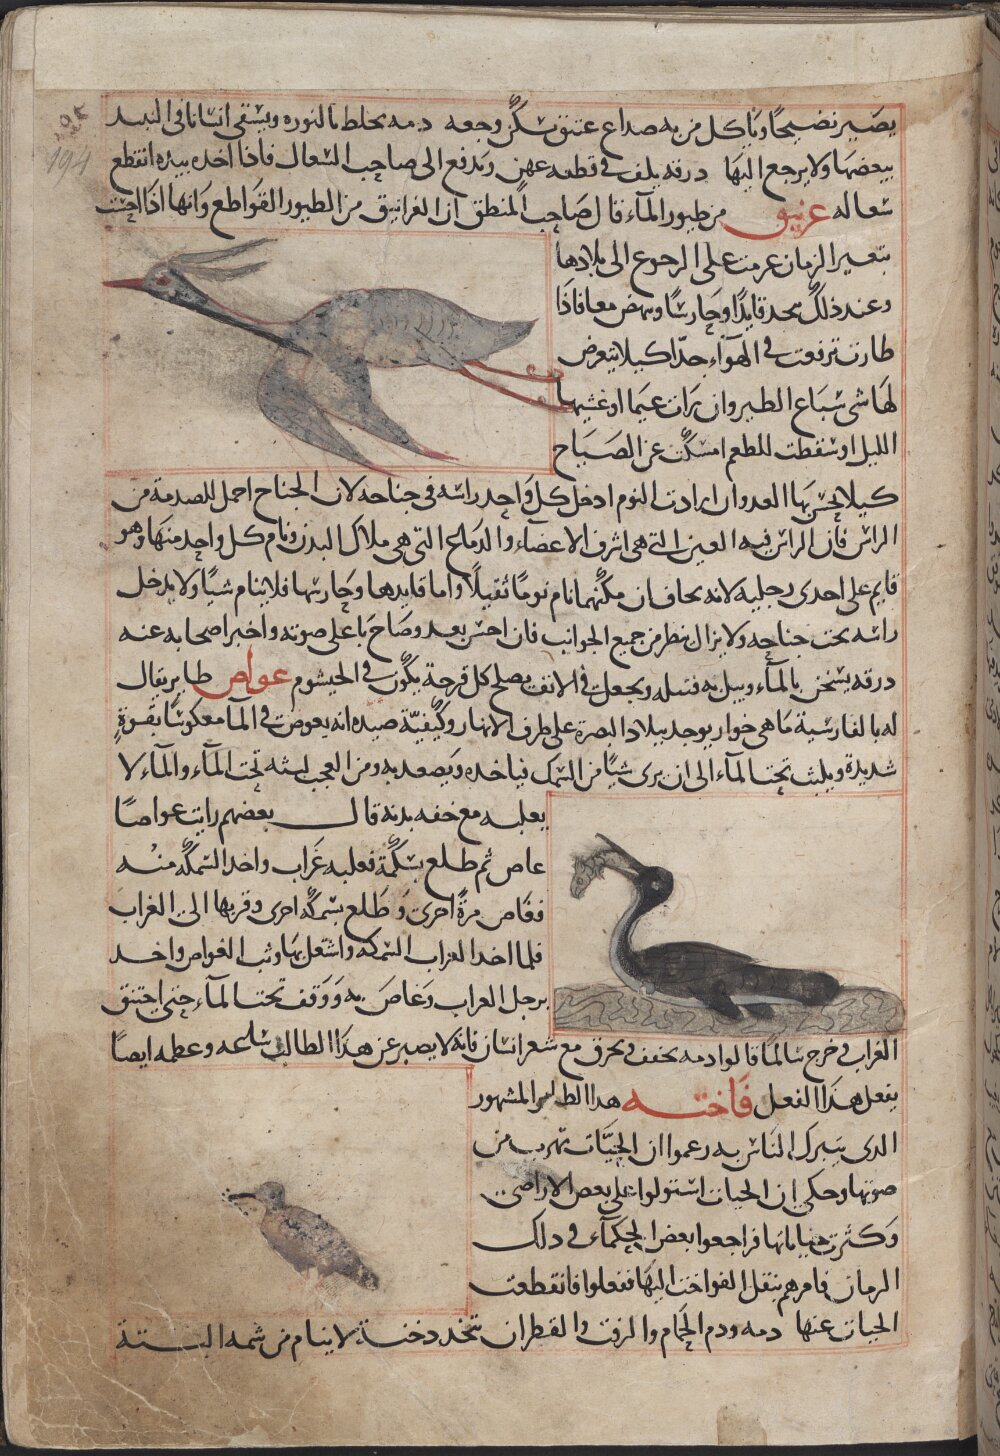 يصير نضيجا وياكل من به صداع عتيق سكن وجعه دمه يخلط بالنوره ويسقى انسانا فى النبيد
١٩٤
194
ببعضها ولا يرجع اليها درقه يلف فى قطعه عهن ويدفع الى صاحب السعال فاذا اخده بيده انقطع
سعاله غرنيق من طيور المآء قال صاحب المنطق ان الغرانيق من الطيور القواطع وانها اذا احست
بتغير الزمان عزمت على الرجوع الى بلادها
وعند ذلك يتخد قايدا وحارسا وينهض معا فاذا
طارت ترفعت فى الهوآء جدا كيلا يتعرض
لها شى سباع الطير وان رات غيما او غشيها
الليل او سقطت للطعم امسكت عن الصياح
كيلا يحس بها العدو وان ارادت النوم ادخل كل واحد راسه فى جناحه لان الجناح احمل للصدمة من
الراس فان الراس فيه العين التى هى اشرف الاعضاء والدماغ التى هى ملاك البدن وينام كل واحد منها وهو
قايم على احدى رجليه لانه يخاف ان مكنهما نام نوما ثقيلا واما قايدها وحارسها فلا ينام شيا ولا يدخل
راسه تحت جناحه ولا يزال ينظر من جميع الجوانب فان احس بعدو صاح باعلى صوته واخبر اصحابه عنه
درقه يسخن بالمآء ويبل به فتيله ويجعل فى الانف يصلح كل قرحة يكون فى الخيشوم غواص طاير يقال
له بالفارسية ماهى خوار يوجد ببلاد البصرة على طرف الانهار وكيفية صيده انه يغوص فى المآ معكوسا بقوة
شديدة ويلبث تحت المآء الى ان يرى شيا من السمك فياخده ويصعد به ومن العجب لبثه تحت المآء والمآء لا
يغلبه مع خفه بدنه قال بعضهم رايت غواصا
غاص ثم طلع بسمكة فغلبه غراب واخد السمكه منه
فغاص مرة اخرى وطلع بسمكه اخرى وقربها الى الغراب
فلما اخد الغراب السمكه واشتغل بها وثب الغواص واخد
برجل الغراب وغاص به ووقف تحت المآء حتى اختنق
الغراب فخرج سالما قالوا دمه يجفف ويحرق مع شعر انسان فانه لا يصبر عن هذا الطالب سلحه وعظمه ايضا
يفعل هذا الفعل فاخته هدا الطاير المشهور
الدى يتبرك الناس به زعموا ان الحيات تهرب من
صوتها وحكى ان الحيات استولوا على بعض الاراضى
وكثرت فراجعوا بعض الحكمآء فى دلك
الزمان فامرهم بنقل الفواخت اليها ففعلوا فانقطعت
الحيات عنها دمه ودم الحمام والزفت والقطران يتخد دخنة لا ينام من شمه البتة